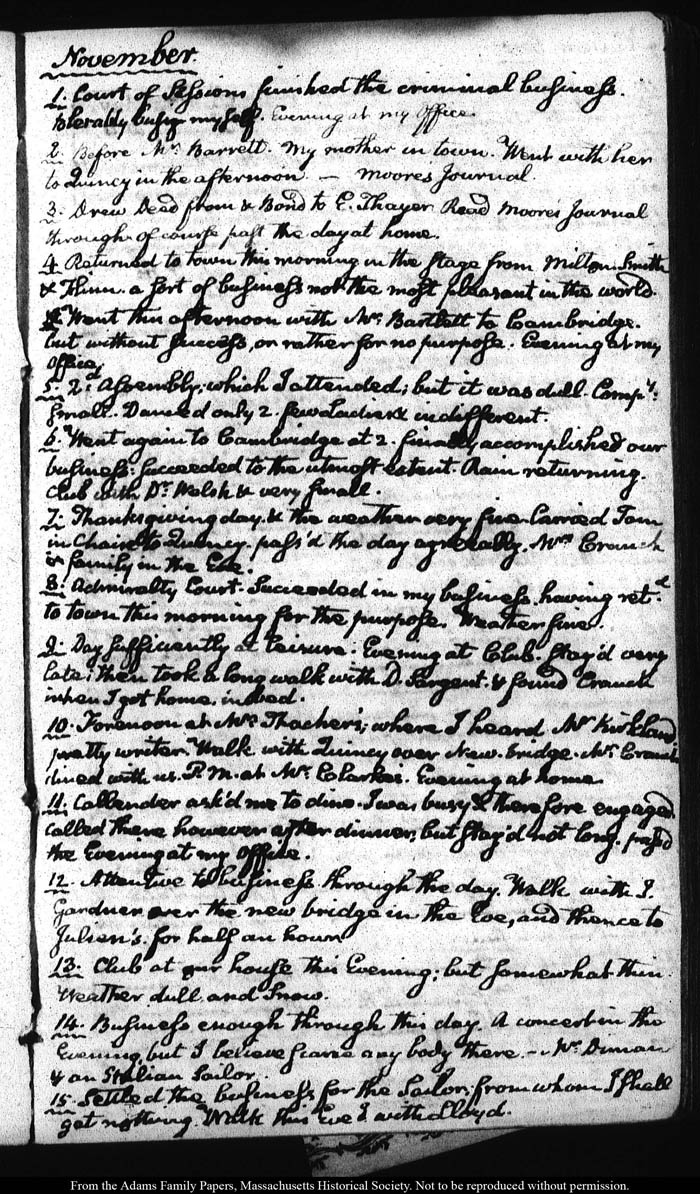 November.
1. Court of Sessions finished the criminal business.
tolerably busy myself. Evening at my Office.
2. Before Mr. Barrett. My mother in town. Went with her
to Quincy in the afternoon. — Moore's Journal.
3. Drew Deed from & Bond to E. Thayer. Read Moore's Journal
through. of course past the day at home.
4. Returned to town this morning in the stage from Milton. Smith
& a sort of business not the most pleasant in the world.
Went this afternoon with Mr. Bartlett to Cambridge.
but without success, or rather for no purpose. Evening at my
Office.
5. 2d. Assembly; which I attended; but it was dull. Compy.
small. Danced only 2. few Ladies & indifferent.
6. Went again to Cambridge at 2. finally accomplished our
business: succeeded to the utmost extent. Rain returning.
Club with Dr. Welsh & very small.
7. Thanksgiving day. & the weather very fine. Carried Tom
in Chaise to Quincy. pass'd the day agreeably. Mrs. Cranch
& family in the Eve.
8. Admiralty Court. Succeeded in my business, having retd.
to town this morning for the purpose. Weather fine.
9. Day sufficiently at leisure. Evening at Club. Stay'd very
late; then took a long walk with D. Sargent. & found Cranch
when I got home, in bed.
10. Forenoon at Mr. Thacher's; where I heard Mr. Kirkland
pretty writer. Walk with Quincy over New-bridge. Mr. Cranch
dined with us. P.M. at Mr. Clarke's. Evening at home.
11. Callender ask'd me to dine. I was busy & therefore engaged
called there however after dinner; but stay'd not long. pass'd
the Evening at my Office.
12. Attentive to business through the day. Walk with J.
Gardner over the new bridge in the Eve, and thence to
Julien's. for half an hour
13. Club at our house this Evening; but somewhat thin.
Weather dull and Snow.
14. Business enough through this day. A concert in the
Evening, but I believe scarce any body there. — Mr.
& an Italian Sailor.
15. Settled the business for the Sailor; from whom I shall
get nothing. Walk this Eve'g. with Lloyd.
From the Adams Family Papers, Massachusetts Historical Society. Not to be reproduced without permission.